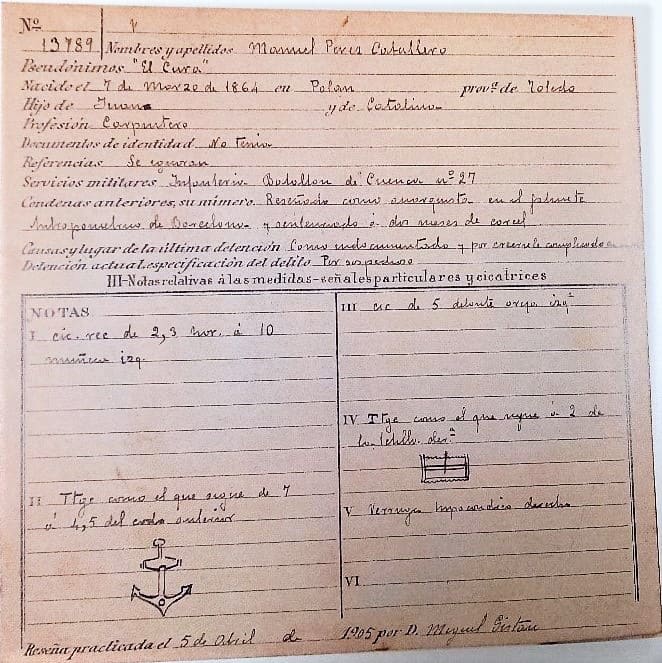 Nº
13789 Nombres y apellidos Manuel Perez Caballero
Pseudónimos "El Cura"
Nacido el 7 de Marzo de 1864 en Polan provª de Toledo
Hijo de Juan y de Catalina
Profesión Carpintero
Documentos de identidad No tenia
Referencias Se ignoran
Servicios militares Infanteria Batallon de Cuenca nº 27
Condenas anteriores, su número. Reseñado como anarquista en el gabinete
Antropometrico de Barcelona y sentenciado á dos meses de carcel
Causas y lugar de la última detención Como indocumentado y por creerle complicado en
Detención actual.especificación del delito Por sospechoso
III-Notas relativas á las medidas-señales particulares y cicatrices
NOTAS
I cic. rec de 2,3 hor. á 10
muñeca izq.
II Ttge como el que sigue de 7
á 4,5 del codo anterior
III cic de 5 delante oreja izqª
IV Ttge como el que sigue á 2 de
la tetilla derª
V Verruga hipocondrio derecho
VI
Reseña practicada el 5 de Abril de 1905 por D. Miguel Gistau